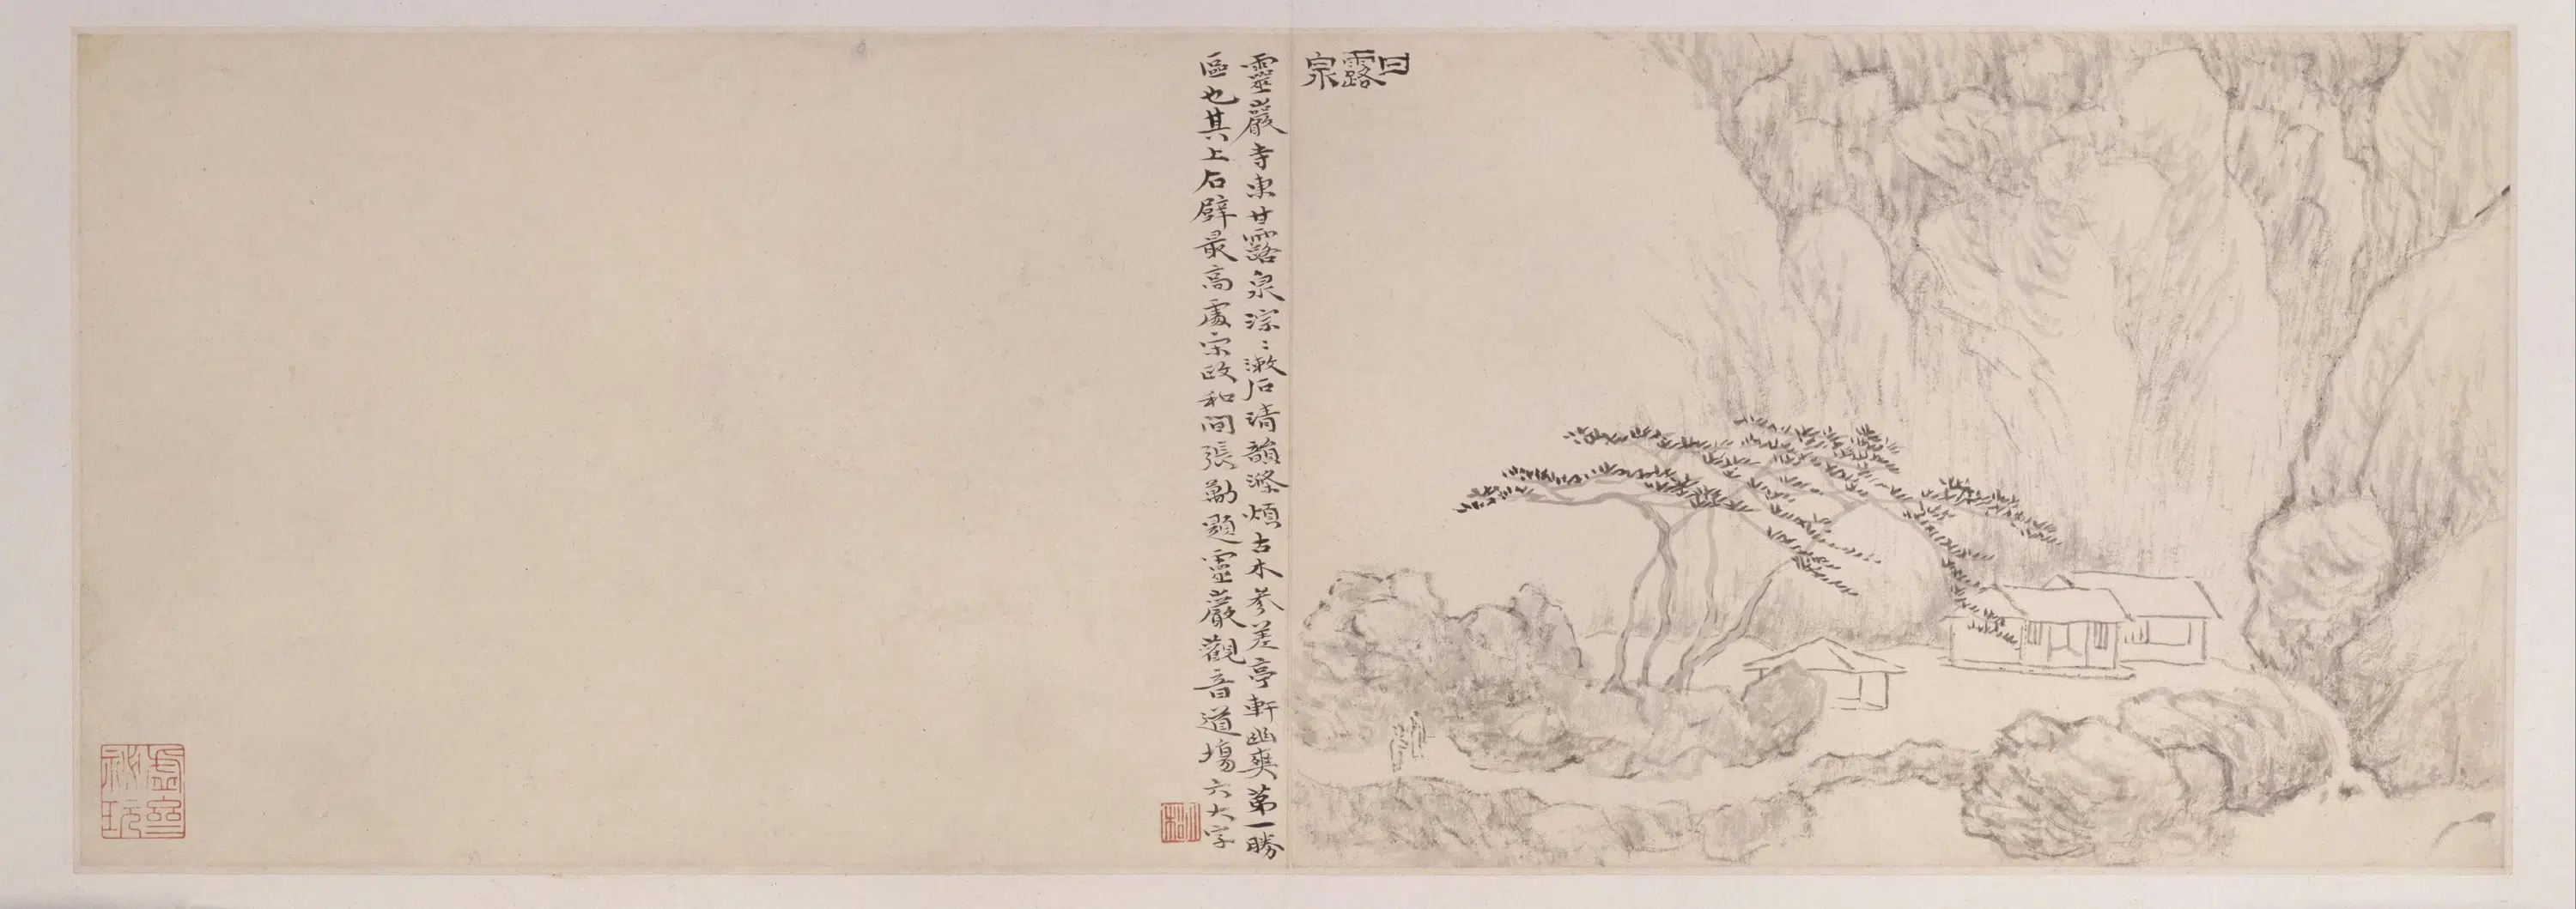 甘露泉
靈巖寺東甘露泉淙〻漱石清韻滌煩古木參差亭軒幽爽第一勝
區也其上石壁最高處宋政和間張勱題靈巖觀音道場六大字
小松
虛齋秘玩